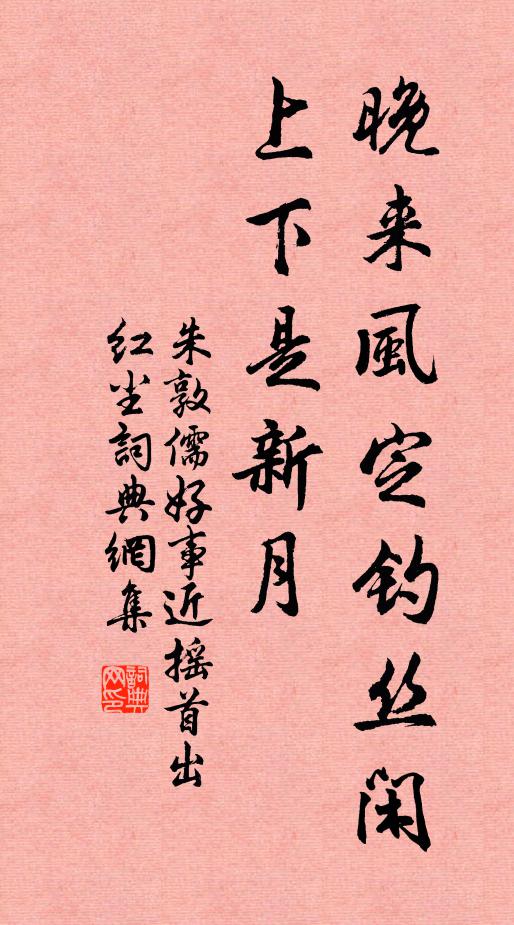 晚来風定钓丝闲
上下是新月
朱敦儒好事近摇首出
红尘詞典網集
詞典
网印